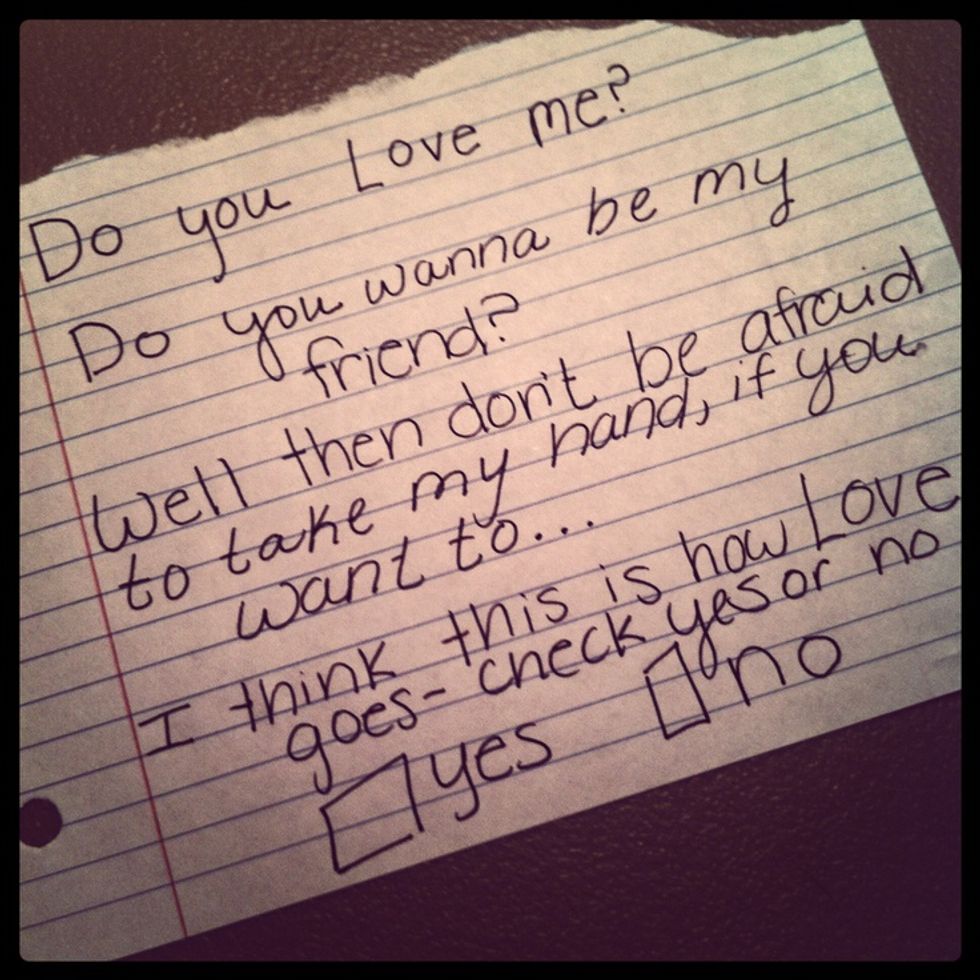 Do you Love me?
Do you wanna be my
friend?
Well then don't be afraid
to take my hand, if you
want to...
I think this is how Love
goes- check yes or no
yes no